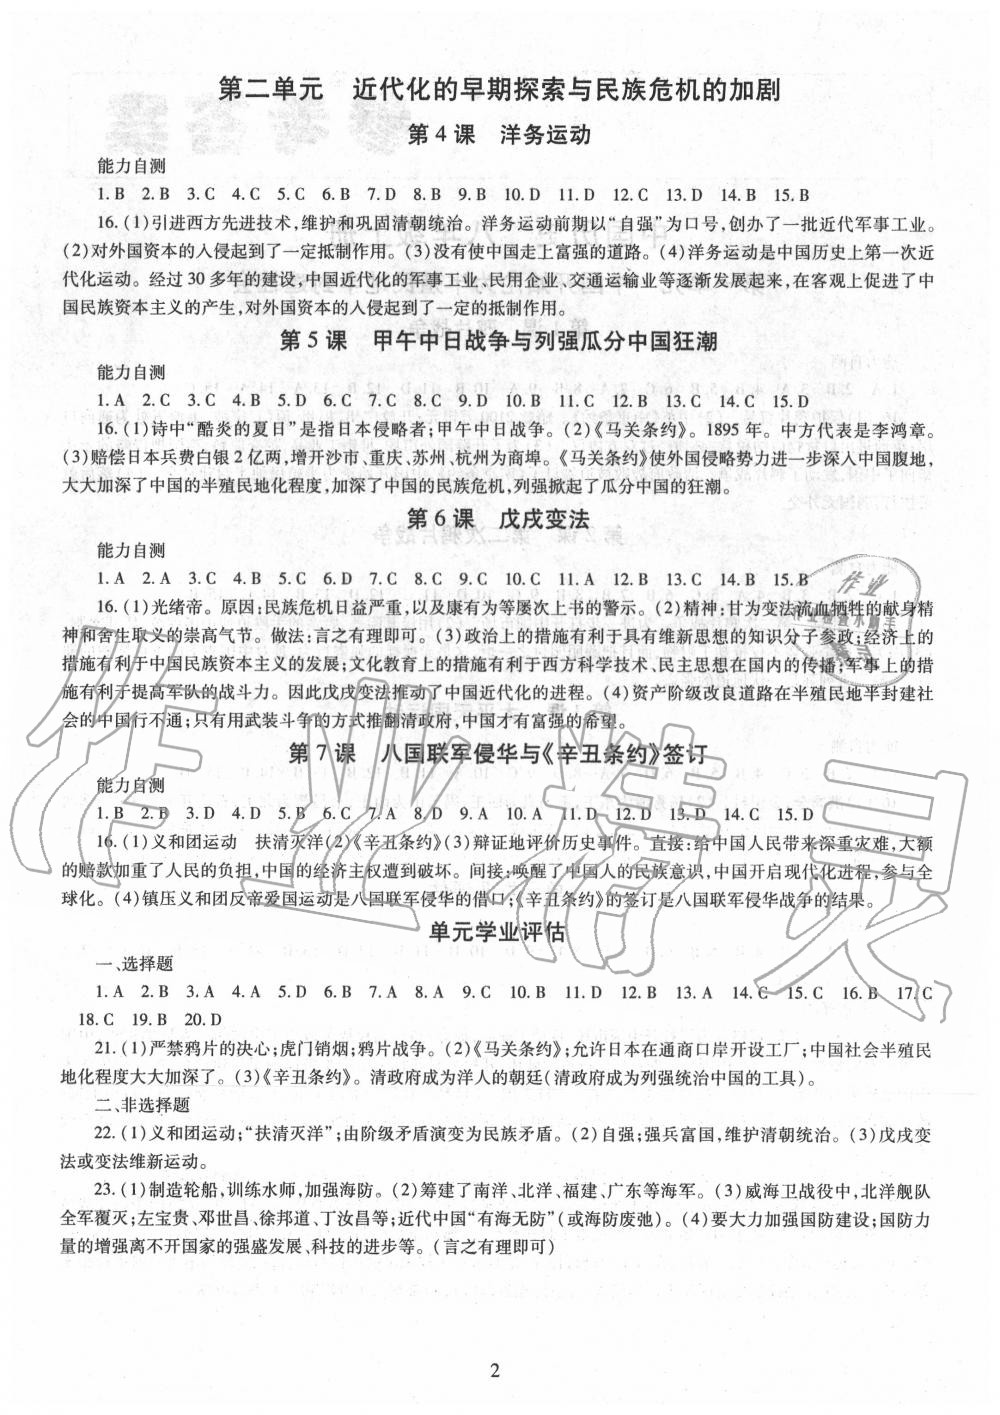 第二单元　近代化的早期探索与民族危机的加剧
第 4 课　洋务运动
能力自测
1. B 2. B 3. C 4. C 5. C 6. B 7. D 8. B 9. B 10. D 11. D 12. C 13. D 14. B 15. B
16. (1)引进西方先进技术,维护和巩固清朝统治。洋务运动前期以“自强”为口号,创办了一批近代军事工业。
(2)对外国资本的入侵起到了一定抵制作用。(3)没有使中国走上富强的道路。(4)洋务运动是中国历史上第一次近
代化运动。经过 30 多年的建设,中国近代化的军事工业、民用企业、交通运输业等逐渐发展起来,在客观上促进了中
国民族资本主义的产生,对外国资本的入侵起到了一定的抵制作用。
第 5 课　甲午中日战争与列强瓜分中国狂潮
能力自测
1. A 2. C 3. D 4. C 5. C 6. B 7. C 8. D 9. B 10. D 11. C 12. B 13. C 14. C 15. D
16. (1)诗中“酷炎的夏日”是指日本侵略者;甲午中日战争。(2)《马关条约》。1895 年。中方代表是李鸿章。
(3)赔偿日本兵费白银 2 亿两,增开沙市、重庆、苏州、杭州为商埠。《马关条约》使外国侵略势力进一步深入中国腹地,
大大加深了中国的半殖民地化程度,加深了中国的民族危机,列强掀起了瓜分中国的狂潮。
第 6 课　戊戌变法
能力自测
1. A 2. A 3. C 4. C 5. B 6. C 7. D 8. A 9. C 10. D 11. B 12. B 13. C 14. A 15. B
16. (1)光绪帝。原因:民族危机日益严重,以及康有为等屡次上书的警示。(2)精神:甘为变法流血牺牲的献身精
神和舍生取义的崇高气节。做法:言之有理即可。(3)政治上的措施有利于具有维新思想的知识分子参政;经济上的
措施有利于中国民族资本主义的发展;文化教育上的措施有利于西方科学技术、民主思想在国内的传播;军事上的措
施有利于提高军队的战斗力。因此戊戌变法推动了中国近代化的进程。(4)资产阶级改良道路在半殖民地半封建社
会的中国行不通;只有用武装斗争的方式推翻清政府,中国才有富强的希望。
第 7 课　八国联军侵华与《辛丑条约》签订
能力自测
1. B 2. B 3. D 4. B 5. B 6. C 7. A 8. D 9. A 10. B 11. D 12. D 13. C 14. C 15. D
16. (1)义和团运动　扶清灭洋(2)《辛丑条约》(3)辩证地评价历史事件。直接:给中国人民带来深重灾难,大额
的赔款加重了人民的负担,中国的经济主权遭到破坏。间接:唤醒了中国人的民族意识,中国开启现代化进程,参与全
球化。(4)镇压义和团反帝爱国运动是八国联军侵华的借口;《辛丑条约》的签订是八国联军侵华战争的结果。
单元学业评估
一、选择题
1. A 2. B 3. A 4. A 5. D 6. B 7. A 8. A 9. C 10. D 11. D 12. B 13. A 14. C 15. C 16. B 17. C
18. C 19. B 20. D
21. (1)严禁鸦片的决心;虎门销烟;鸦片战争。(2)《马关条约》;允许日本在通商口岸开设工厂;中国社会半殖民
地化程度大大加深了。(3)《辛丑条约》。清政府成为洋人的朝廷(清政府成为列强统治中国的工具)。
二、非选择题
22. (1)义和团运动;“扶清灭洋”;由阶级矛盾演变为民族矛盾。(2)自强;强兵富国,维护清朝统治。(3)戊戌变
法或变法维新运动。
23. (1)制造轮船,训练水师,加强海防。(2)筹建了南洋、北洋、福建、广东等海军。(3)威海卫战役中,北洋舰队
全军覆灭;左宝贵、邓世昌、徐邦道、丁汝昌等;近代中国“有海无防”(或海防废弛)。(4)要大力加强国防建设;国防力
量的增强离不开国家的强盛发展、科技的进步等。(言之有理即可)
2
作业精灵